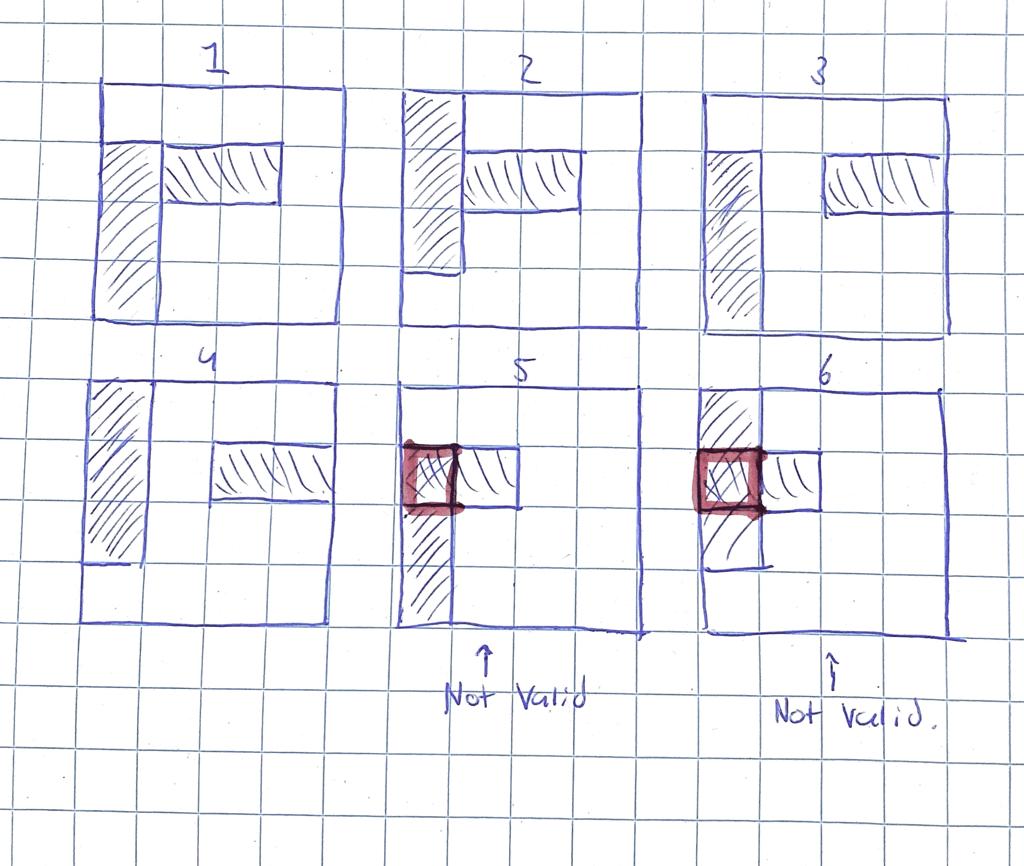 1 2 3
4 5 6
Not Valid
Not Valid.